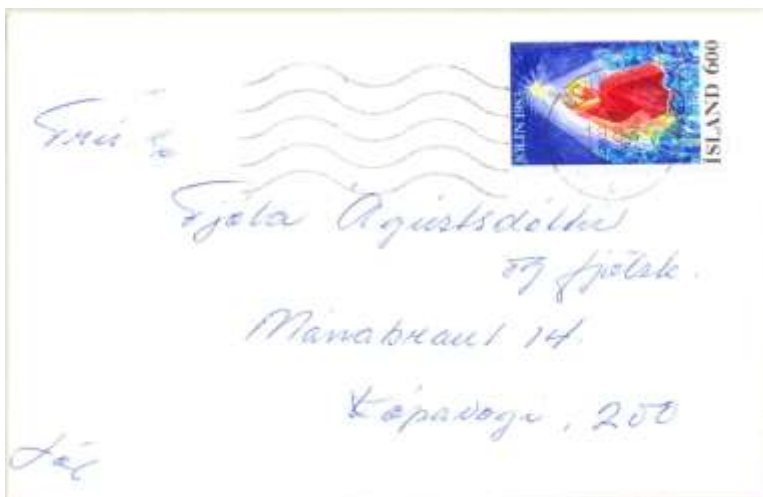 JÓLIN 1983
ÍSLAND 600
Frú
Fjóla Ágústsdóttir
og fjölsk.
Mánabraut 14.
Kópavogi, 200
Jól